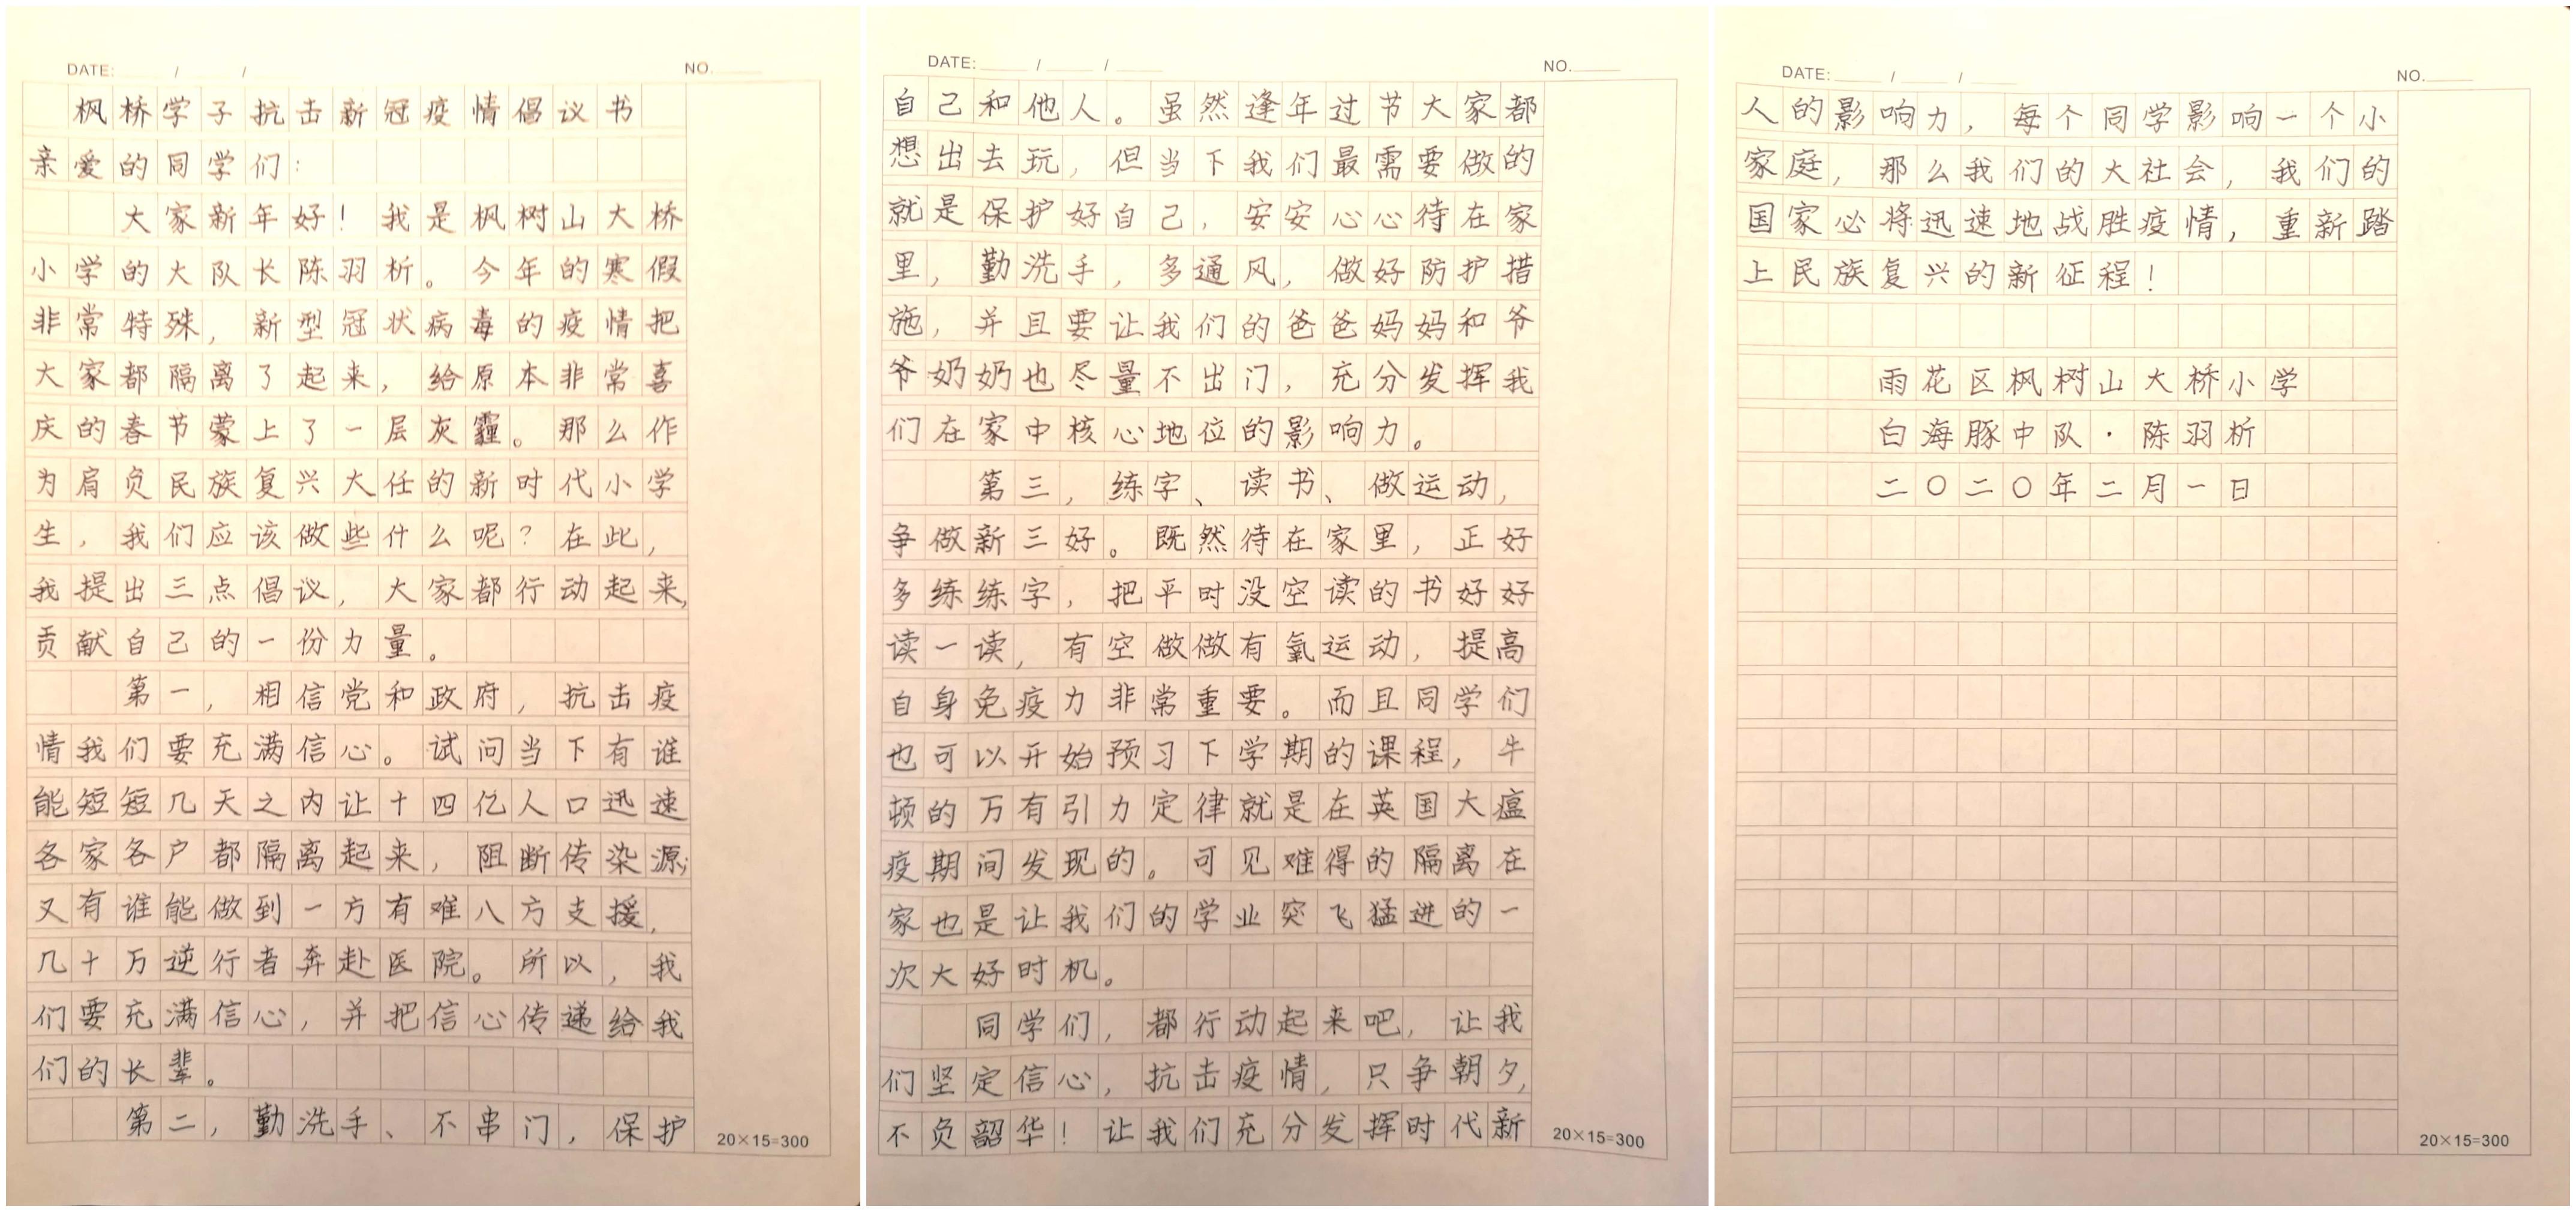 DATE: / / NO.
枫桥学子抗击新冠疫情倡议书
亲爱的同学们：
大家新年好！我是枫树山大桥
小学的大队长陈羽析。今年的寒假
非常特殊，新型冠状病毒的疫情把
大家都隔离了起来，给原本非常喜
庆的春节蒙上了一层灰霾。那么作
为肩负民族复兴大任的新时代小学
生，我们应该做些什么呢？在此，
我提出三点倡议，大家都行动起来，
贡献自己的一份力量。
第一，相信党和政府，抗击疫
情我们要充满信心。试问当下有谁
能短短几天之内让十四亿人口迅速
各家各户都隔离起来，阻断传染源；
又有谁能做到一方有难八方支援，
几十万逆行者奔赴医院。所以，我
们要充满信心，并把信心传递给我
们的长辈。
第二，勤洗手、不串门，保护
20×15=300
DATE: / / NO.
自己和他人。虽然逢年过节大家都
想出去玩，但当下我们最需要做的
就是保护好自己，安安心心待在家
里，勤洗手，多通风，做好防护措
施，并且要让我们的爸爸妈妈和爷
爷奶奶也尽量不出门，充分发挥我
们在家中核心地位的影响力。
第三，练字、读书、做运动，
争做新三好。既然待在家里，正好
多练练字，把平时没空读的书好好
读一读，有空做做有氧运动，提高
自身免疫力非常重要。而且同学们
也可以开始预习下学期的课程，牛
顿的万有引力定律就是在英国大瘟
疫期间发现的。可见难得的隔离在
家也是让我们的学业突飞猛进的一
次大好时机。
同学们，都行动起来吧，让我
们坚定信心，抗击疫情，只争朝夕，
不负韶华！让我们充分发挥时代新
20×15=300
DATE: / / NO.
人的影响力，每个同学影响一个小
家庭，那么我们的大社会，我们的
国家必将迅速地战胜疫情，重新踏
上民族复兴的新征程！
雨花区枫树山大桥小学
白海豚中队·陈羽析
二〇二〇年二月一日
20×15=300